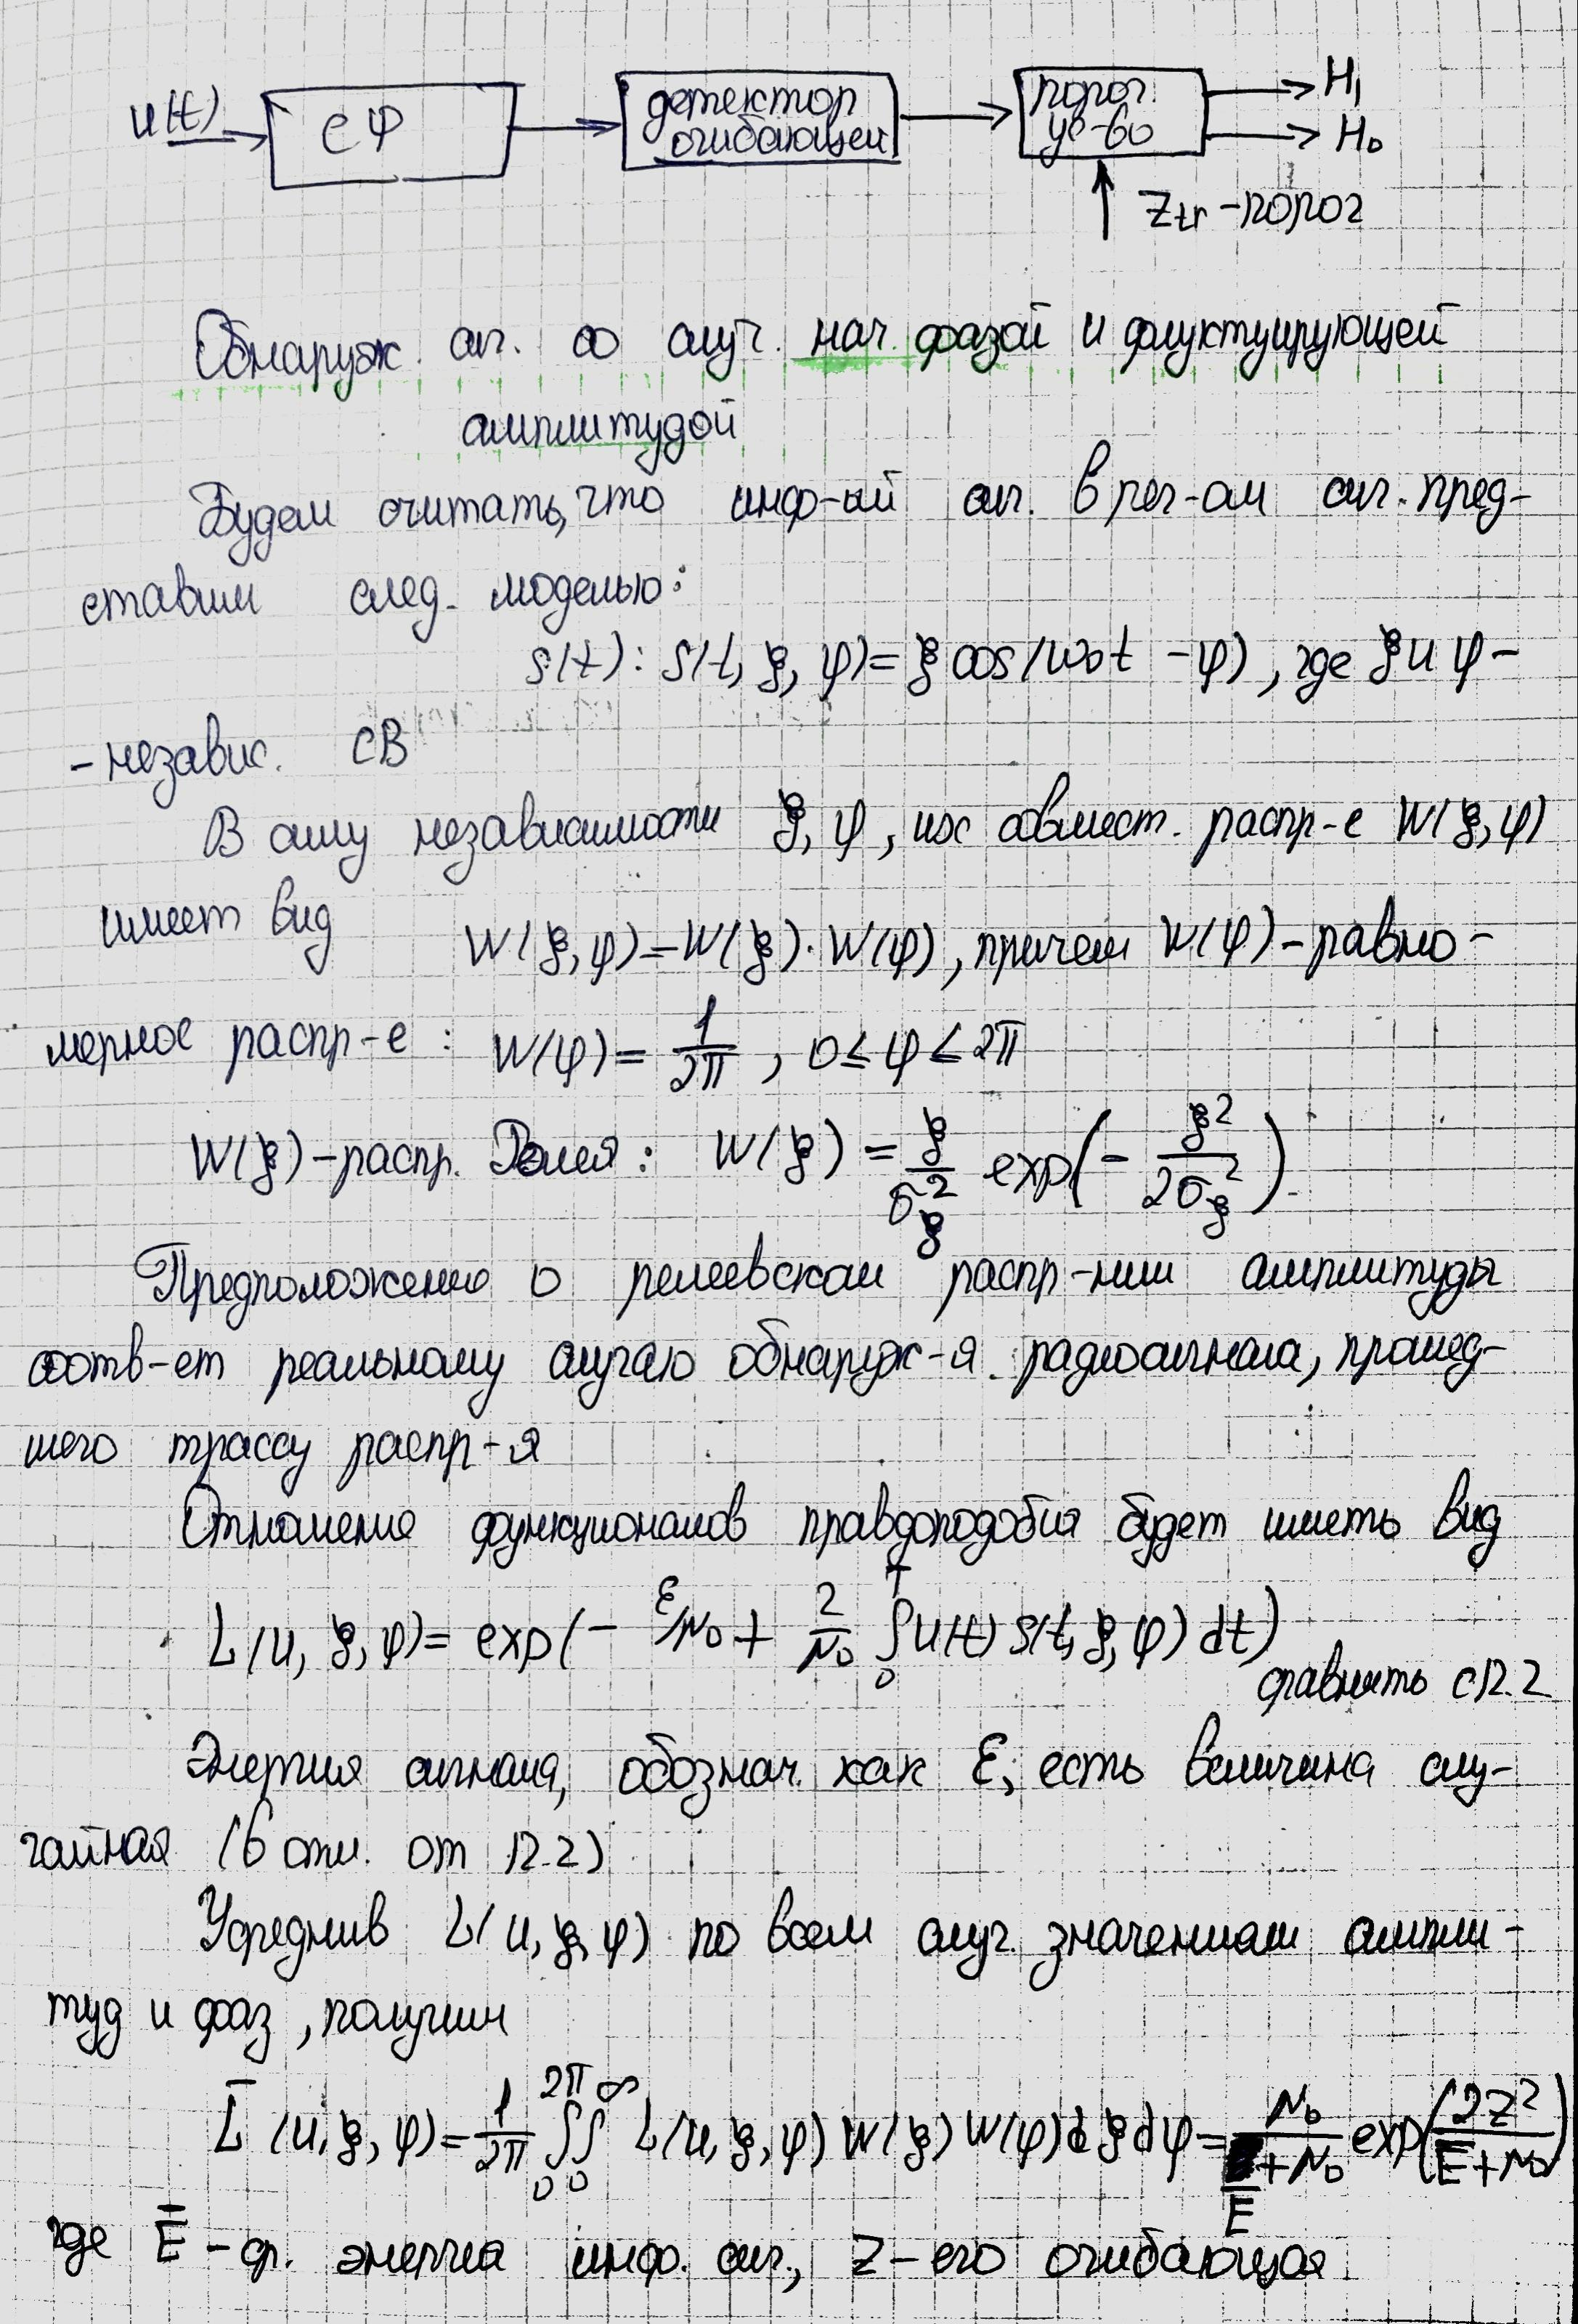 u(t) СФ детектор огибающей порог. ус-во H₁ H₀
Ztr - порог
Обнаруж. сиг. со случ. нач. фазой и флуктуирующей
амплитудой
Будем считать, что инф-ый сиг. в рег-ом сиг. пред-
ставим след. моделью:
s(t): s(t, ξ, φ) = ξ cos(ω₀t - φ), где ξ и φ -
- независ. СВ
В силу независимости ξ, φ, их совмест. распр-е W(ξ, φ)
имеет вид W(ξ, φ) = W(ξ) · W(φ), причем W(φ) - равно-
мерное распр-е: W(φ) = 1/2π, 0 ≤ φ ≤ 2π
W(ξ) - распр. Рэлея: W(ξ) = ξ/σ_ξ² exp(- ξ²/2σ_ξ²)
Предположение о релеевском распр-нии амплитуды
соотв-ет реальному случаю обнаруж-я радиосигнала, прошед-
шего трассу распр-я
Отношение функционалов правдоподобия будет иметь вид
L(u, ξ, φ) = exp(- ε/N₀ + 2/N₀ ∫₀ᵀ u(t) s(t, ξ, φ) dt)
сравнить с 12.2
Энергия сигнала, обознач. как ε, есть величина слу-
чайная (в отл. от 12.2)
Усреднив L(u, ξ, φ) по всем случ. значениям ампли-
туд и фаз, получим
L̄(u, ξ, φ) = 1/2π ∫₀^2π ∫₀^∞ L(u, ξ, φ) W(ξ) W(φ) dξ dφ = N₀/(Ē + N₀) exp(2Z²/(Ē + N₀))
где Ē - ср. энергиа инф. сиг., Z - его огибающая.